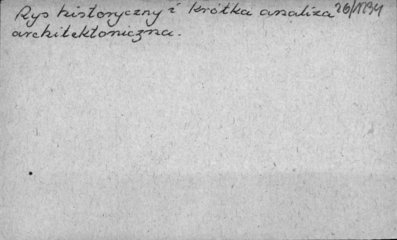 Rys historyczny i krótka analiza
architektoniczna.